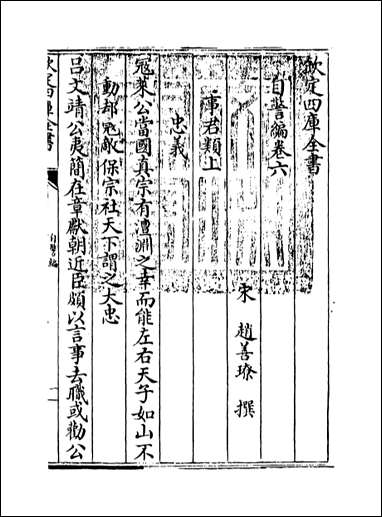 欽定四庫全書
自警編卷六
宋 趙善璙 撰
事君類上
忠義
寇萊公當國真宗有澶淵之幸而能左右天子如山不
動却冦敵保宗社天下謂之大忠
呂文靖公夷簡在章獻朝近臣頗以言事去職或勸公
欽定四庫全書
自警編